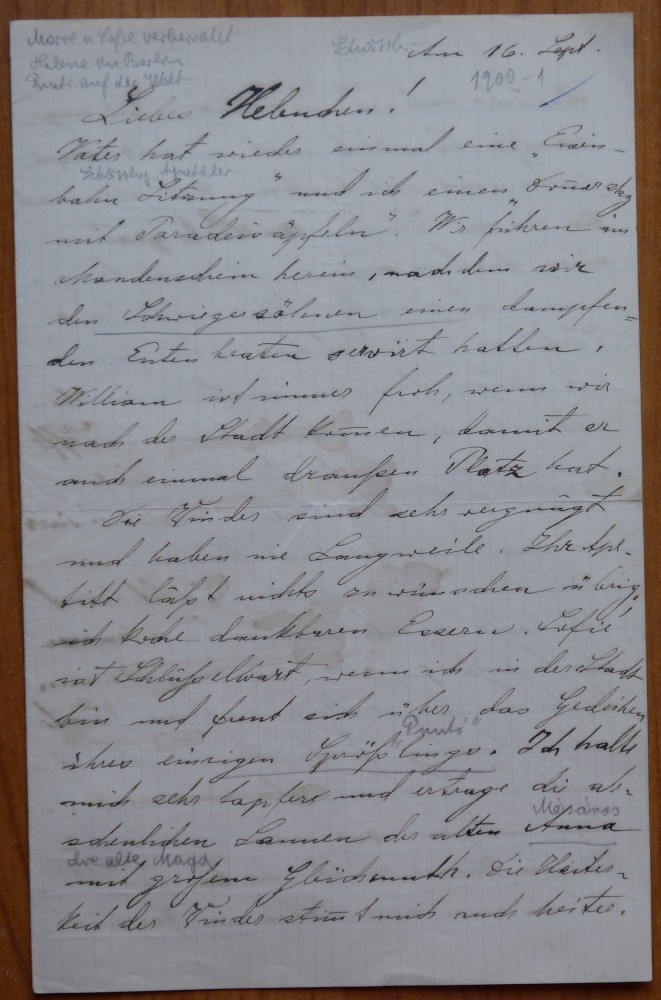 verheiratet
Helene in Berlin
Punti auf der Welt
Am 16. Sept.
1900-1
Liebes Helenchen!
Vater hat wieder einmal eine „Eisen-
bahn Sitzung" und ich einen „Donnerstag
mit Paradeisäpfeln". Wir führen im
Mondenschein herein, nachdem wir
den Schwiegersöhnen einen dampfen=
den Entenbraten servirt hatten.
William ist immer froh, wenn wir
nach der Stadt kom̄en, damit er
auch einmal draußen Platz hat.
Die Kinder sind sehr vergnügt
und haben nie Langweile. Ihr Ape-
titt läßt nichts zu wünschen übrig,
ich koche dankbaren Essern. Sofie
ist Schlüsselwart, wenn ich in der Stadt
bin und freut sich über das Gedeihen
„Punti"
ihres einzigen Sprößlings. Ich halte
mich sehr tapfer und ertrage die ab-
scheulichen Launen der alten Anna
Mésáros
die alte Magd
mit großem Gleichmuth. Die Heiter-
keit der Kinder stim̄t mich auch heiter.